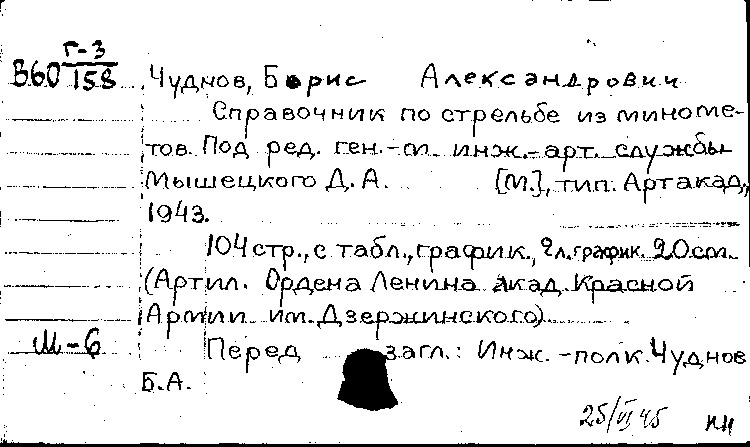 Г-3
В60 158 Чуднов, Борис Александрович
Справочник по стрельбе из миноме-
тов. Под ред. ген.-м. инж.-арт. службы
Мышецкого Д.А. [М.], тип. Артакад.,
1943.
104 стр., с табл., график., 2 л. график. 20 см.
(Артил. Ордена Ленина акад. Красной
Армии им. Дзержинского)
М-6
Перед загл.: Инж.-полк. Чуднов
Б.А.
25/VI 45 пн